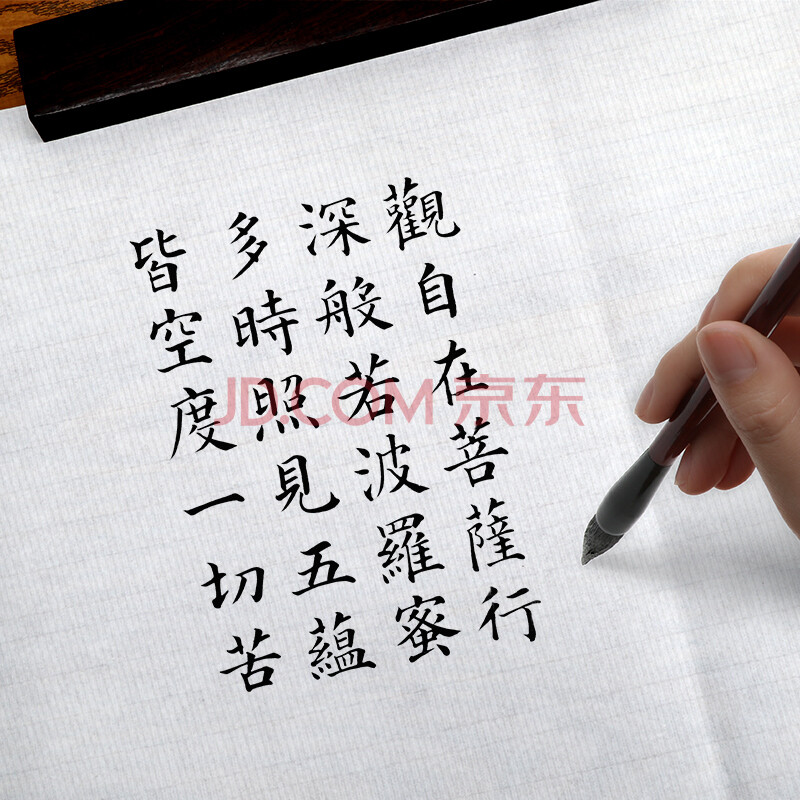 觀自在菩薩行
深般若波羅蜜
多時照見五蘊
皆空度一切苦
JD.COM 京东